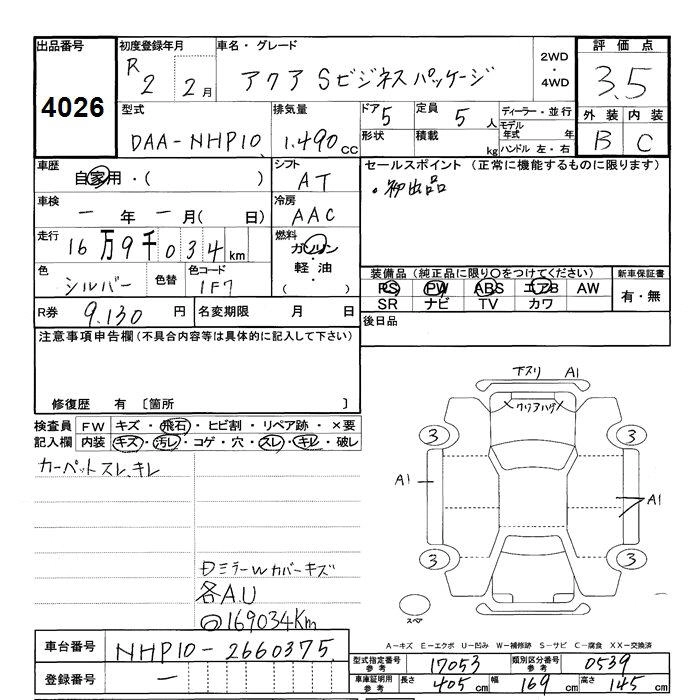 出品番号 初度登録年月 車名・グレード 2WD・4WD 評価点
4026 R2 2月 アクア Sビジネスパッケージ 3.5
型式 排気量 ドア 5 定員 5人 ディーラー・並行 外装 内装
DAA-NHP10 1.490cc 形状 積載 kg モデル年式 年 B C
ハンドル 左・右
車歴 自家用・( ) シフト AT セールスポイント (正常に機能するものに限ります)
・初出品
車検 一年一月( 日) 冷房 AAC
走行 16万9千034km 燃料 ガソリン・軽油・( )
色 シルバー 色替 色コード 1F7
装備品 (純正品に限り〇をつけてください) 新車保証書
PS PW ABS エアB AW 有・無
SR ナビ TV カワ
R券 9.130円 名変期限 月 日 後日品
注意事項申告欄 (不具合内容等は具体的に記入して下さい)
修復歴 有 〔箇所 〕
検査員記入欄 FW キズ・飛石・ヒビ割・リペア跡・×要
内装 キズ・汚レ・コゲ・穴・スレ・キレ・破レ
カーペットスレ、キレ
下スリ A1
クリアハゲ
3 3
A1 A1
3 3
スペア
ミラーWカバーキズ
各A.U
169034Km
A-キズ E-エクボ U-凹み W-補修跡 S-サビ C-腐食 XX-交換済
車台番号 NHP10-2660375
登録番号 一
型式指定番号 参考 17053 類別区分番号 参考 0539
車庫証明用 参考 長さ 405cm 幅 169cm 高さ 145cm